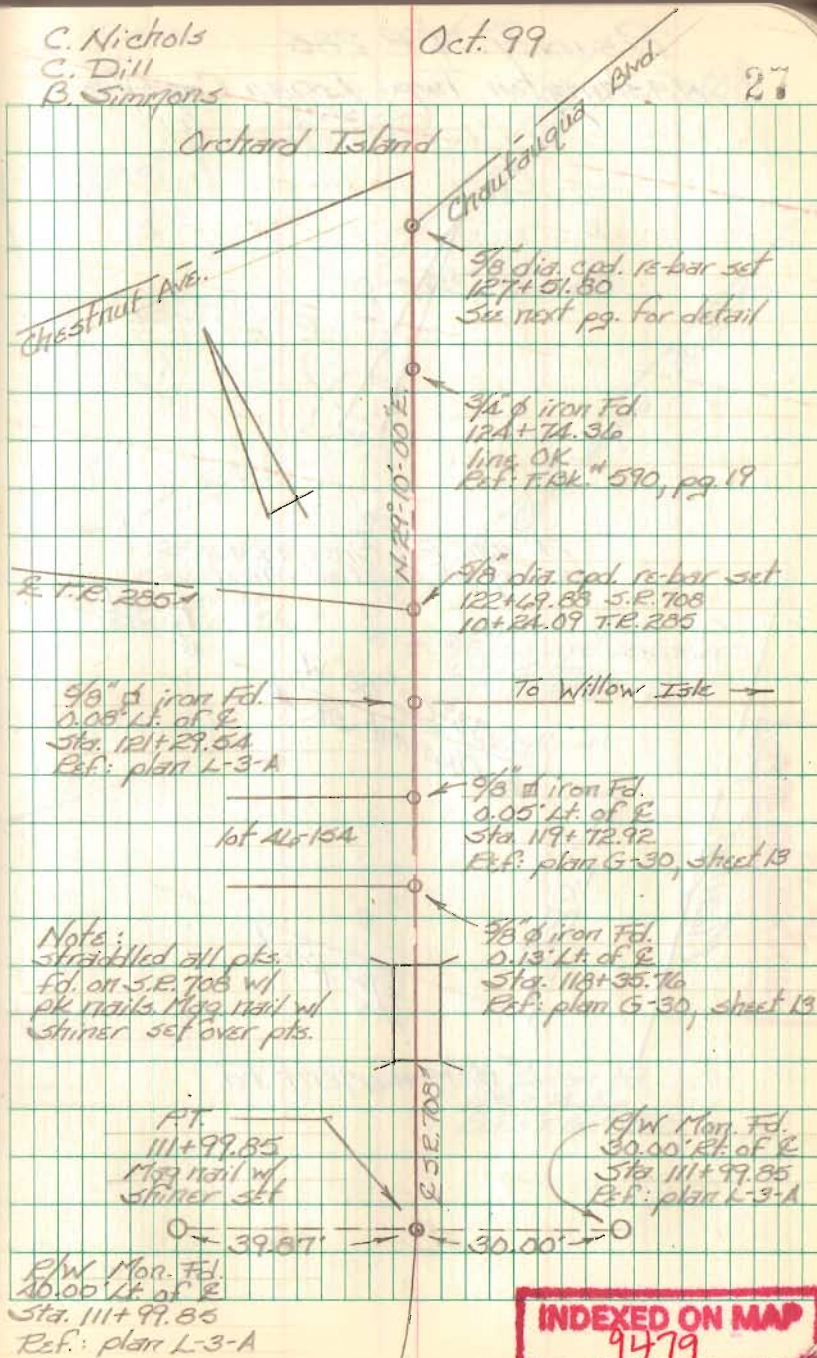 C. Nichols
C. Dill
B. Simmons
Oct. 99
27
Orchard Island
Chautauqua Blvd.
Chestnut Ave.
5/8" dia. cpd. re-bar set
127+51.80
See next pg. for detail
3/4" ø iron Fd.
124+74.36
line OK
Ref: F.Bk.# 590, pg. 19
N.29°-10'-00"E.
℄ T.R. 285
5/8" dia. cpd. re-bar set
122+69.88 S.R. 708
10+24.09 T.R. 285
5/8" ø iron Fd.
0.08' Lt. of ℄
Sta. 121+29.54
Ref: plan L-3-A
To Willow Isle
5/8" ⌑ iron Fd.
0.05' Lt. of ℄
Sta. 119+72.92
Ref: plan G-30, sheet 13
lot 46-154
5/8" ø iron Fd.
0.13' Lt. of ℄
Sta. 118+35.76
Ref: plan G-30, sheet 13
Note:
straddled all pts.
fd. on S.R. 708 w/
pk nails. Mag nail w/
shiner set over pts.
℄ S.R. 708
P.T.
111+99.85
Mag nail w/
shiner set
R/W Mon. Fd.
30.00' Rt. of ℄
Sta. 111+99.85
Ref: plan L-3-A
39.87'
30.00'
R/W Mon. Fd.
40.00' Lt. of ℄
Sta. 111+99.85
Ref.: plan L-3-A
INDEXED ON MAP
9479